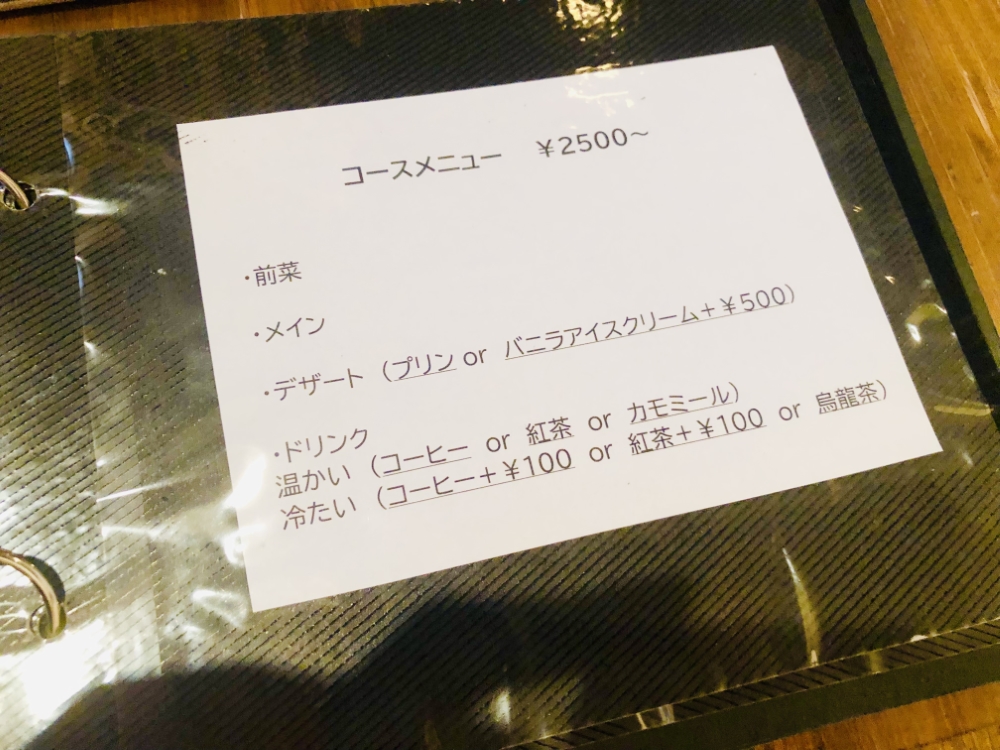 コースメニュー　¥2500～
・前菜
・メイン
・デザート（プリン or バニラアイスクリーム＋¥500）
・ドリンク
温かい（コーヒー or 紅茶 or カモミール）
冷たい（コーヒー＋¥100 or 紅茶＋¥100 or 烏龍茶）